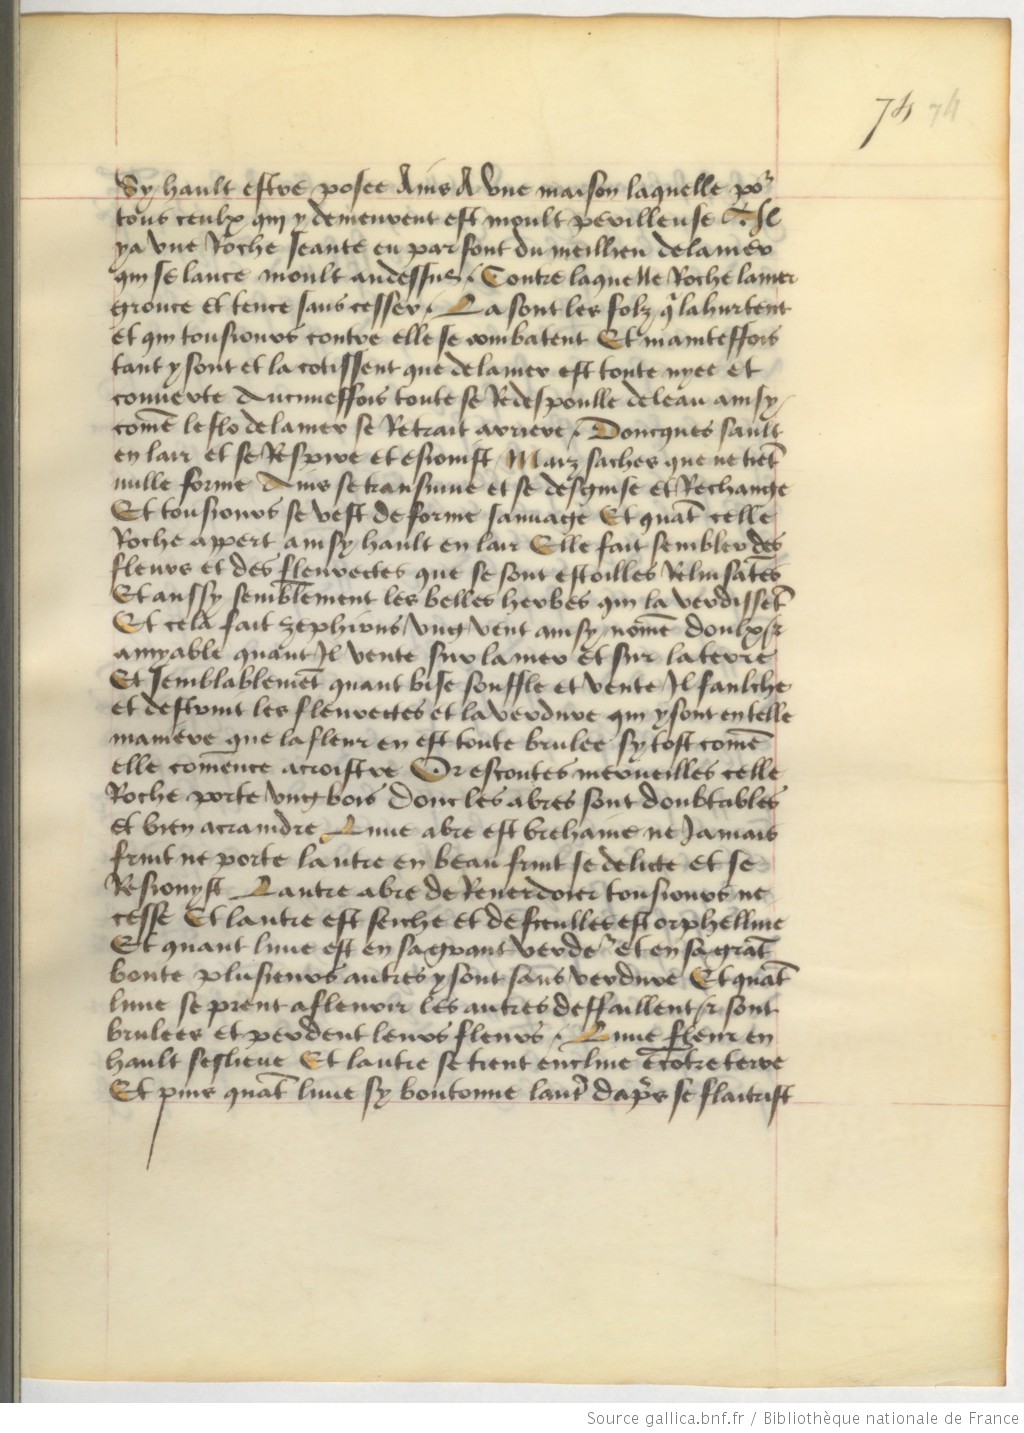 74 74
Sy hault estre posee Ains A Une maison laquelle poᷣ
tous ceulx qui y demeurent est moult perilleuse Il
ya une Roche seante en parfont du meillieu de la mer
qui se lance moult au dessus / Contre laquelle Roche la mer
grouce et tence sans cesser / La sont les folz q̃ la hurtent
et qui tousiours contre elle se combatent Et mainteffois
tant y sont et la cotissent que de la mer est toute nyee et
couverte Aucuneffois toute se Redespoulle de leau ainsy
com̃e le flo de la mer se Retrait arriere / Doncques sault
en lair et se Respire et esiouist Maiz saches que ne tiẽt
nulle forme Ains se transmue et se desguise et Rechange
Et tousiours se vest de forme sauvage Et quãt celle
Roche appert ainsy hault en lair Elle fait sembler des
fleurs et des fleurectes que se sont estoilles Reluisãtes
Et aussy semblement les belles herbes qui la verdissẽt
Et cela fait zephirus ung vent ainsy nom̃e doulx et
amyable quant Il vente sur la mer et sur la terre
Et semblablemẽt quant bise souffle et vente Il faulche
et destruit les fleurectes et la verdure qui y sont en telle
maniere que la fleur en est toute brulee sy tost com̃e
elle com̃ence a croistre Or escoutes merveilles celle
Roche porte ung bois donc les abres sont doubtables
et bien a craindre Lune abre est brehaine ne Jamais
fruit ne porte lautre en beau fruit se delicte et se
Resiouyst Lautre abre de Reverdoier tousiours ne
cesse Et lautre est seiche et de feulles est orphelline
Et quant lune est en sa grant verdeᷣ et en sa grãt
bonte plusieurs autres y sont sans verdure Et quãt
lune se prent a fleurir les autres deffaillent et sont
brulees et perdent leurs fleurs / Lune fleur en
hault seslieve Et lautre se tient encline ẽcõtre terre
Et puis quãt lune sy boutonne laut̃ dap̃s se flaitrist
Source gallica.bnf.fr / Bibliothèque nationale de France